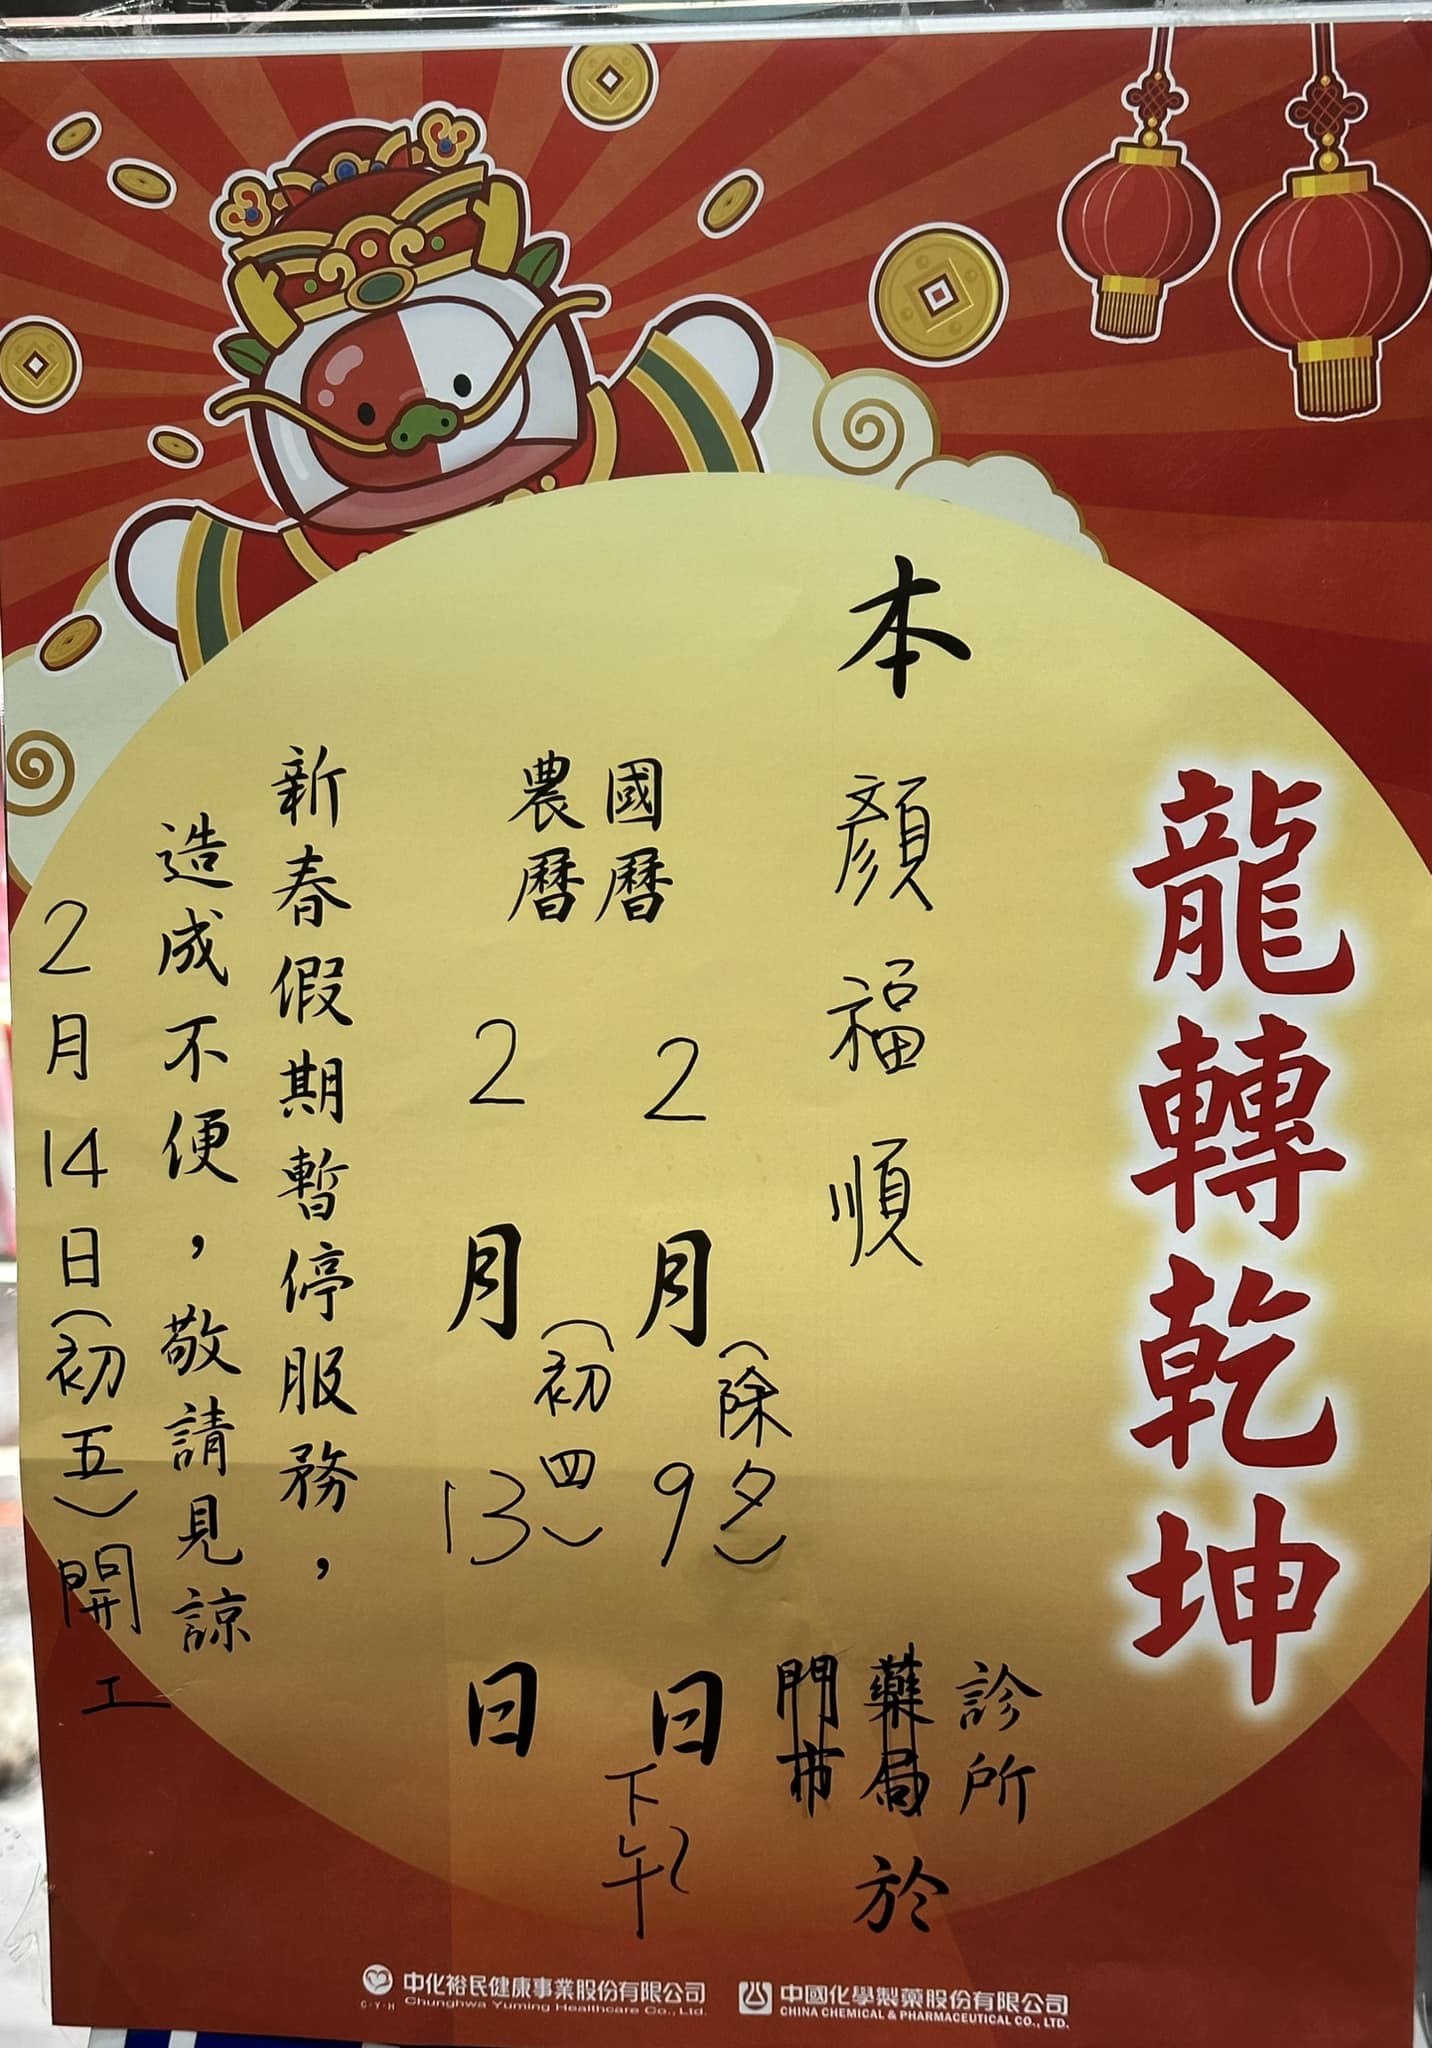 龍轉乾坤
本 顏福順 診所
藥局
門市
於
國曆 2月9日下午~
(除夕)
農曆 2月13日
(初四)
新春假期暫停服務，
造成不便，敬請見諒
2月14日(初五)開工
中化裕民健康事業股份有限公司
C·Y·H Chunghwa Yuming Healthcare Co., Ltd.
中國化學製藥股份有限公司
CHINA CHEMICAL & PHARMACEUTICAL CO., LTD.